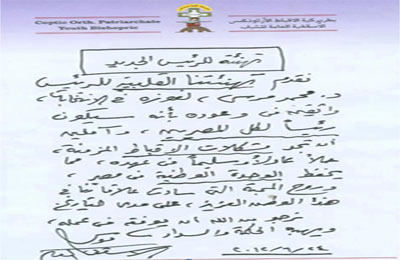 Coptic Orth. Patriarchate
Youth Bishopric
بطريركية الأقباط الأرثوذكس
الأسقفية العامة للشباب
تهنئة للرئيس الجديد
نقدم تهنئتنا القلبية للرئيس
د. محمد مرسى، لفوزه فى الانتخابات،
واثقين فى وعوده بأنه سيكون
رئيساً لكل المصريين، وآملين
أن تحل مشكلات الأقباط المزمنة،
حلاً عادلاً وسليماً فى عهده، مما
يحفظ الوحدة الوطنية فى مصر،
وروح المحبة التى سادت علاقاتنا فى
هذا الوطن العزيز، على مدى التاريخ
نرجو من الله أن يوفقه فى عمله،
ويهبه الحكمة والسداد،
٢٠١٢/٦/٢٤